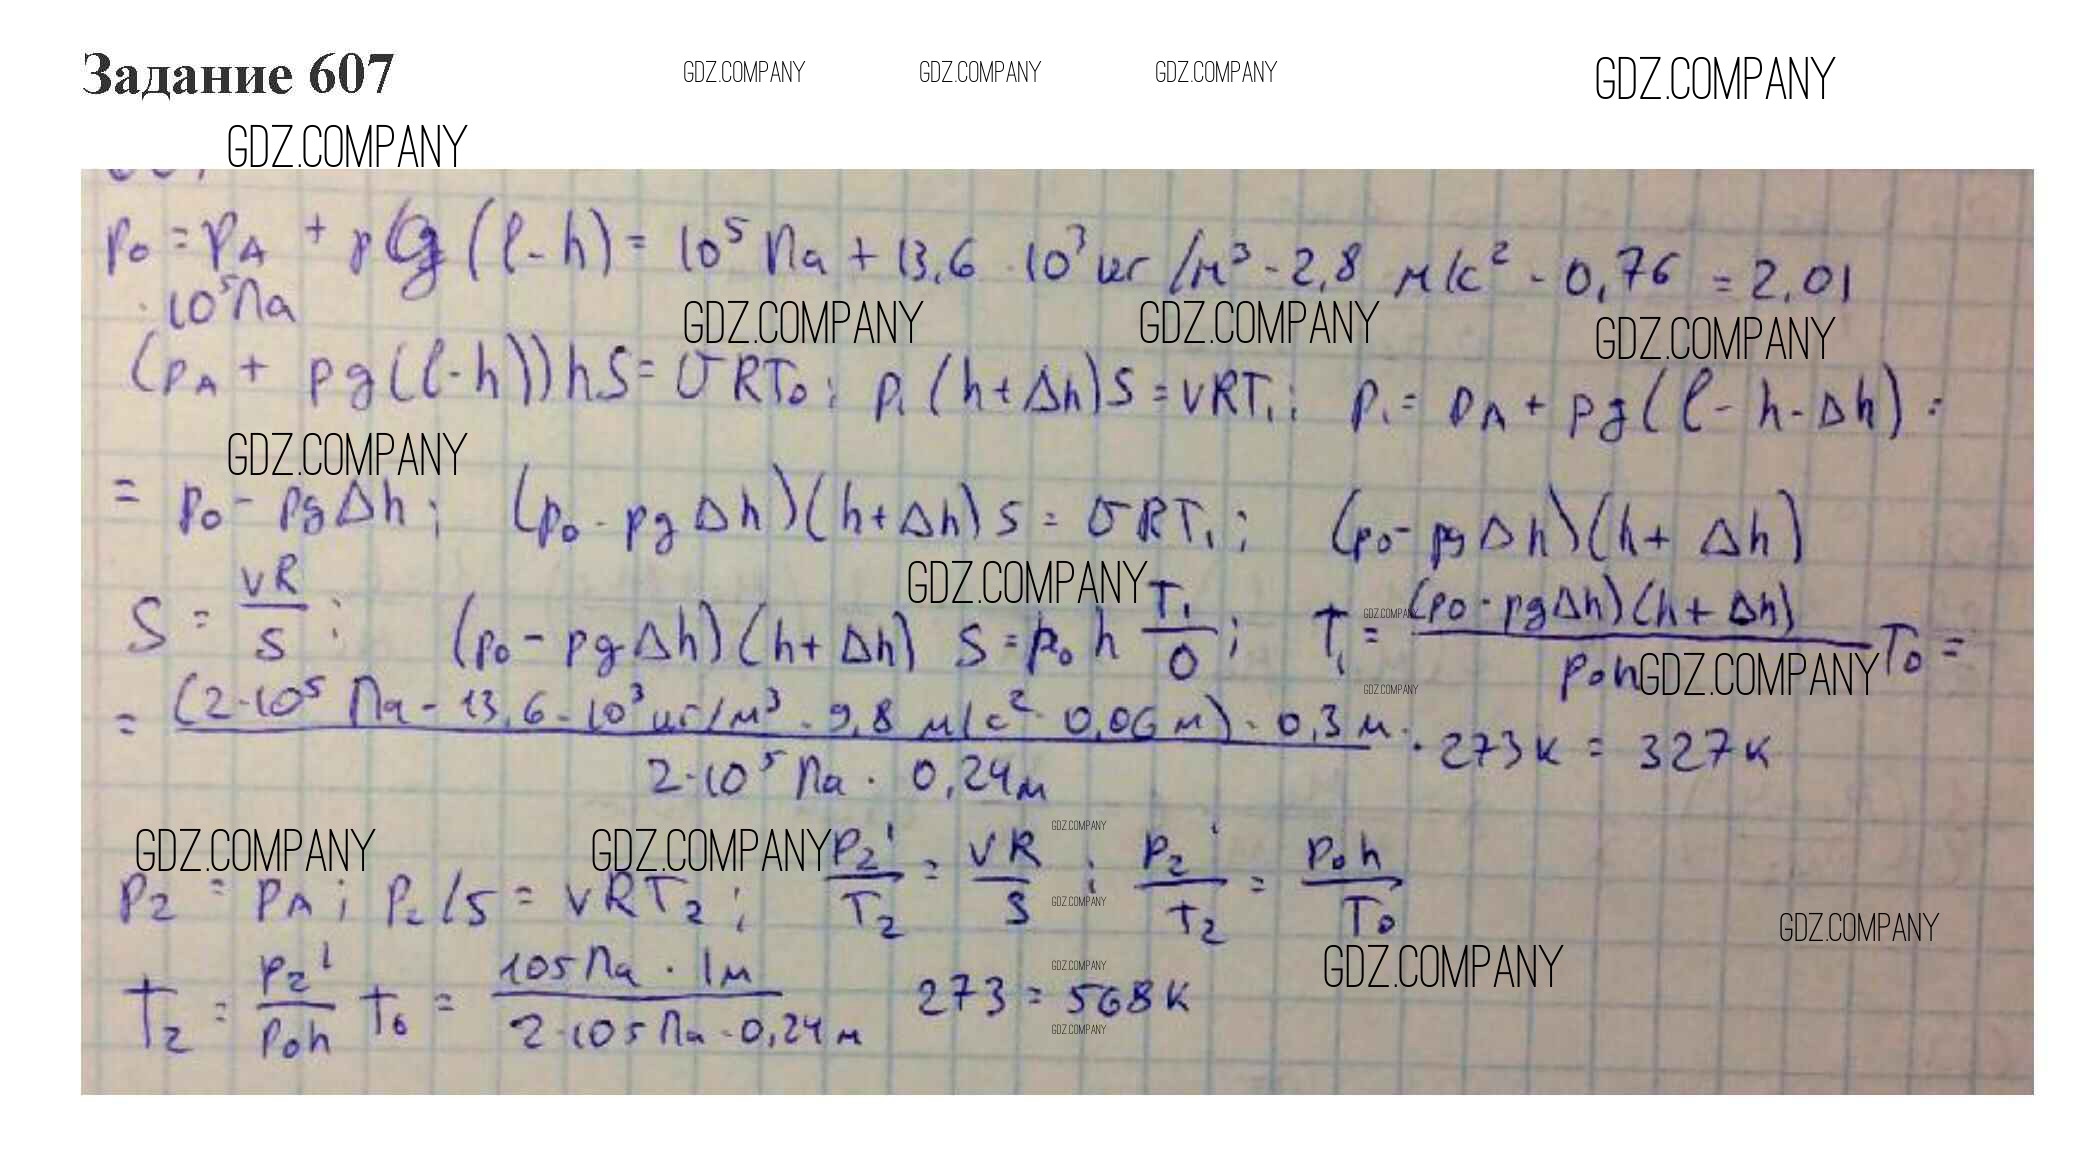 Задание 607
GDZ.COMPANY GDZ.COMPANY GDZ.COMPANY GDZ.COMPANY
GDZ.COMPANY
p₀ = p_A + ρg(l-h) = 10⁵ Па + 13,6 · 10³ кг/м³ - 2,8 м/с² - 0,76 = 2,01
· 10⁵ Па
GDZ.COMPANY GDZ.COMPANY GDZ.COMPANY
(p_A + ρg(l-h))hS = σRT₀; p₁(h+Δh)S = νRT₁; p₁ = p_A + ρg(l-h-Δh) =
GDZ.COMPANY
= p₀ - ρgΔh; (p₀ - ρgΔh)(h+Δh)S = σRT₁; (p₀ - ρgΔh)(h+Δh)
GDZ.COMPANY
S = νR/S; (p₀ - ρgΔh)(h+Δh) S = p₀h T₁/0; T₁ = (p₀ - ρgΔh)(h+Δh)/p₀h T₀ =
GDZ.COMPANY
GDZ.COMPANY GDZ.COMPANY
= (2·10⁵ Па - 13,6 - 10³ кг/м³ · 9,8 м/с² · 0,06 м) · 0,3 м / 2·10⁵ Па · 0,24 м · 273 К = 327 К
GDZ.COMPANY GDZ.COMPANY GDZ.COMPANY
p₂ = p_A; p₂lS = νRT₂; p₂l/T₂ = νR/S; p₂l/T₂ = p₀h/T₀
GDZ.COMPANY
GDZ.COMPANY GDZ.COMPANY
T₂ = p₂l/p₀h T₀ = 105 Па · 1 м / 2·105 Па · 0,24 м 273 = 568 К
GDZ.COMPANY
GDZ.COMPANY